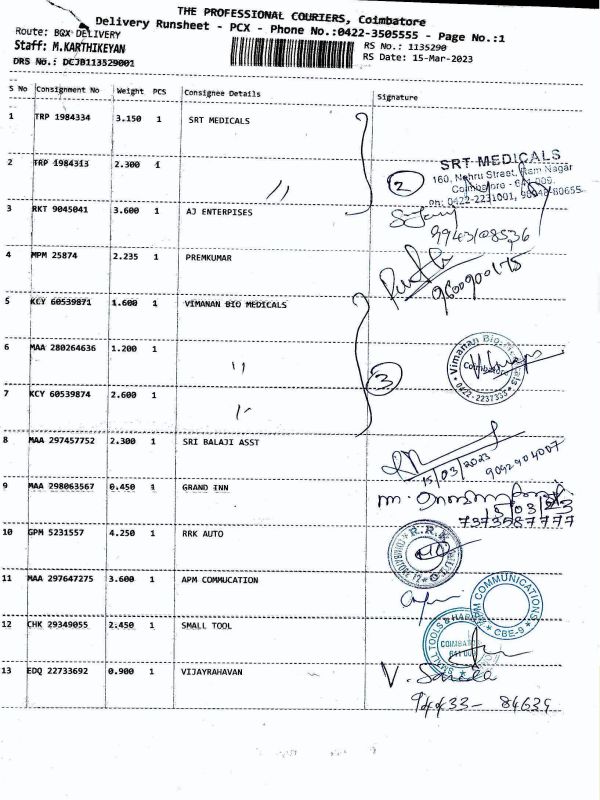 THE PROFESSIONAL COURIERS, Coimbatore
Delivery Runsheet - PCX - Phone No.:0422-3505555 - Page No.:1
Route: BOX DELIVERY
Staff: M.KARTHIKEYAN
RS No.: 1135290
DRS No.: DCJD113529001
RS Date: 15-Mar-2023
S No Consignment No Weight PCS Consignee Details Signature
1 TRP 1984334 3.150 1 SRT MEDICALS
2 TRP 1984313 2.300 1 〃
2
SRT MEDICALS
160, Nehru Street, Ram Nagar
Coimbatore - 641 009.
Ph: 0422-2231001,
3 RKT 9045041 3.600 1 AJ ENTERPISES
9943108536
4 MPM 25874 2.235 1 PREMKUMAR
9600900175
5 KCY 60539871 1.600 1 VIMANAN BIO MEDICALS
6 MAA 280264636 1.200 1 〃
3
Vimanan Bio-Medicals
Coimbatore
0422-2237353
7 KCY 60539874 2.600 1 〃
8 MAA 297457752 2.300 1 SRI BALAJI ASST
15/03/2023
9092904007
9 MAA 298063567 0.450 1 GRAND INN
15/03/23
7373587777
10 GPM 5231557 4.250 1 RRK AUTO
R.R.K
11 MAA 297647275 3.600 1 APM COMMUCATION
COMMUNICATIONS
CBE-9
12 CHK 29349055 2.450 1 SMALL TOOL
SMALL TOOLS &
COIMBATORE
13 EDQ 22733692 0.900 1 VIJAYRAHAVAN
V. Sarela
94433- 84639